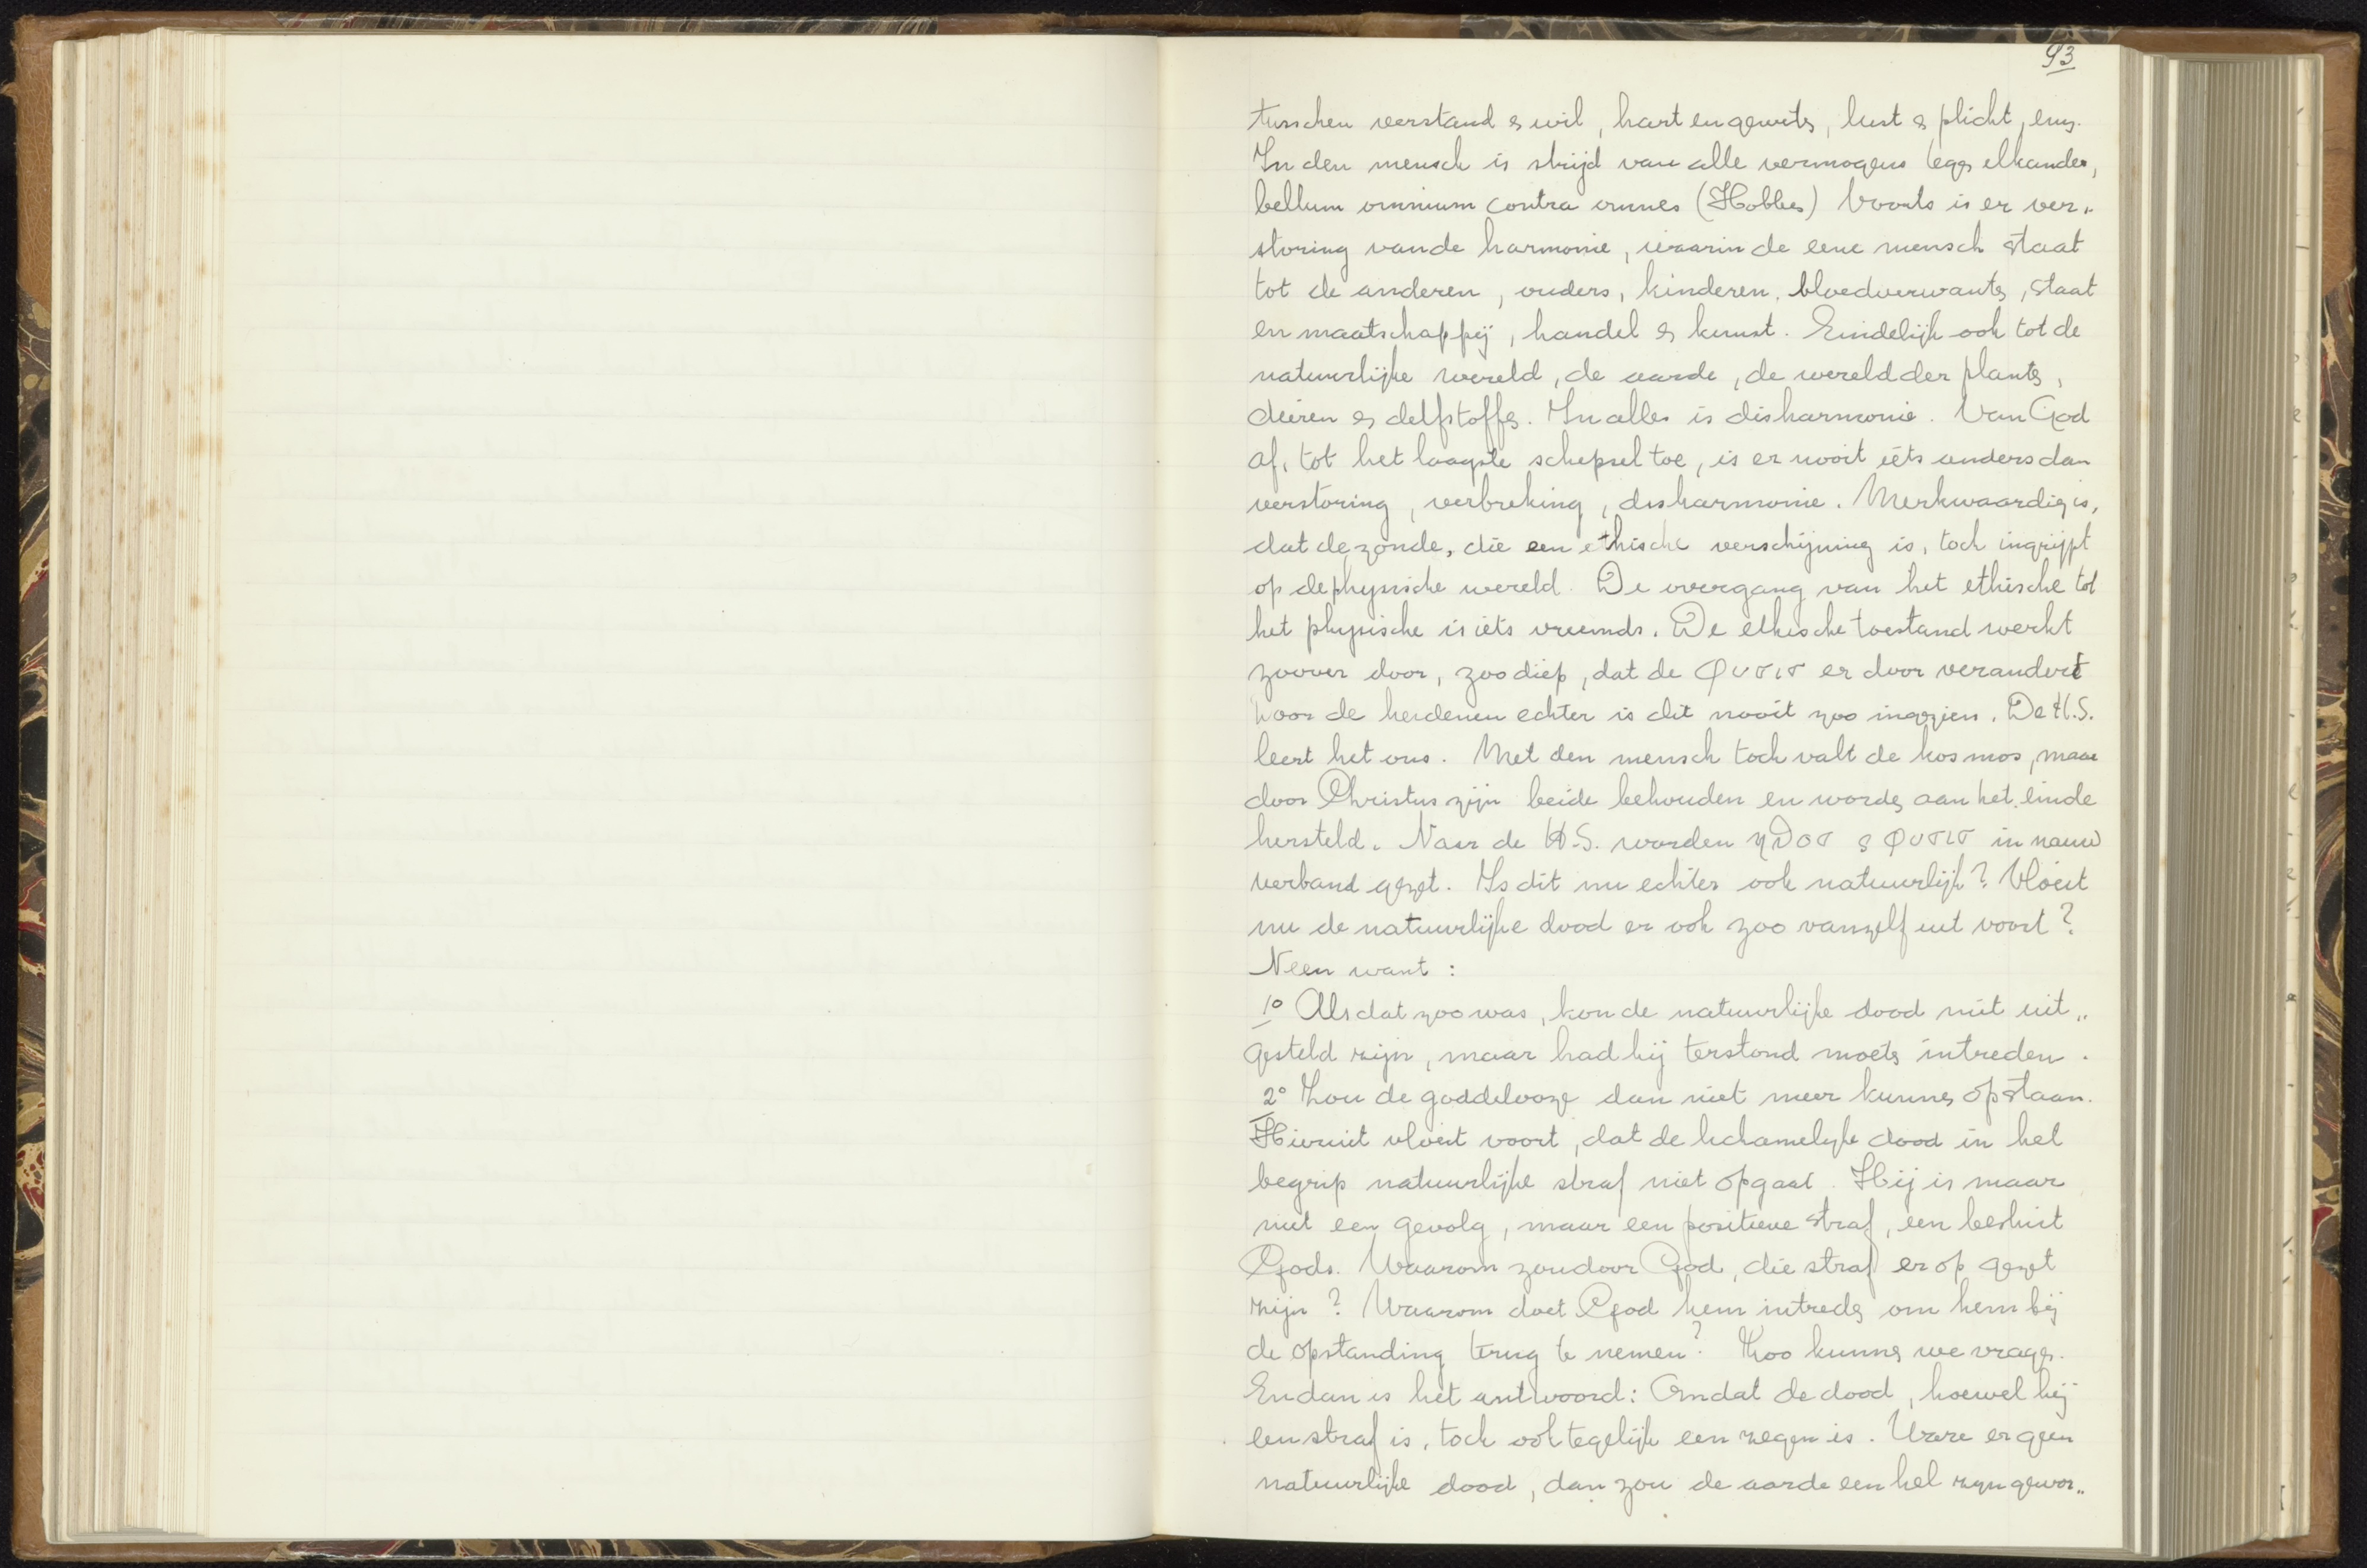 93
tusschen verstand & wil, hart en geweten, lust & plicht, enz.
In den mensch is strijd van alle vermogens tegen elkander,
bellum omnium contra omnes (Hobbes) Voorts is er ver„
storing van de harmonie, waarin de eene mensch staat
tot de anderen, ouders, kinderen, bloedverwanten, staat
en maatschappij, handel en kunst. Eindelijk ook tot de
natuurlijke wereld, de aarde, de wereld der planten,
dieren en delfstoffen. In alles is disharmonie. Van God
af, tot het laagste schepsel toe, is er nooit iets anders dan
verstoring, verbreking, disharmonie. Merkwaardig is,
dat de zonde, die een ethische verschijning is, toch ingrijpt
op de physische wereld. De overgang van het ethische tot
het physische is iets vreemds. De ethische toestand werkt
zoover door, zoo diep, dat de φυσις er door verandert
Door de heidenen echter is dit nooit zoo ingezien. De H.S.
leert het ons. Met den mensch toch valt de kosmos, maar
door Christus zijn beide behouden en worden aan het einde
hersteld. Naar de H.S. worden ηθος & φυσις in nauw
verband gezet. Is dit nu echter ook natuurlijk? Vloeit
nu de natuurlijke dood er ook zoo vanzelf uit voort?
Neen want:
1° Als dat zoo was, kon de natuurlijke dood niet uit„
gesteld zijn, maar had hij terstond moeten intreden.
2° Zou de goddelooze dan niet meer kunnen opstaan.
Hieruit vloeit voort, dat de lichamelijke dood in het
begrip natuurlijke straf niet opgaat. Hij is maar
niet een gevolg, maar een positieve straf, een besluit
Gods. Waarom zou door God, die straf er op gezet
zijn? Waarom doet God hem intreden om hem bij
de opstanding terug te nemen? Zoo kunnen we vragen.
En dan is het antwoord: Omdat de dood, hoewel hij
een straf is, toch ook tegelijk een zegen is. Ware er geen
natuurlijke dood, dan zou de aarde een hel zijn gewor„